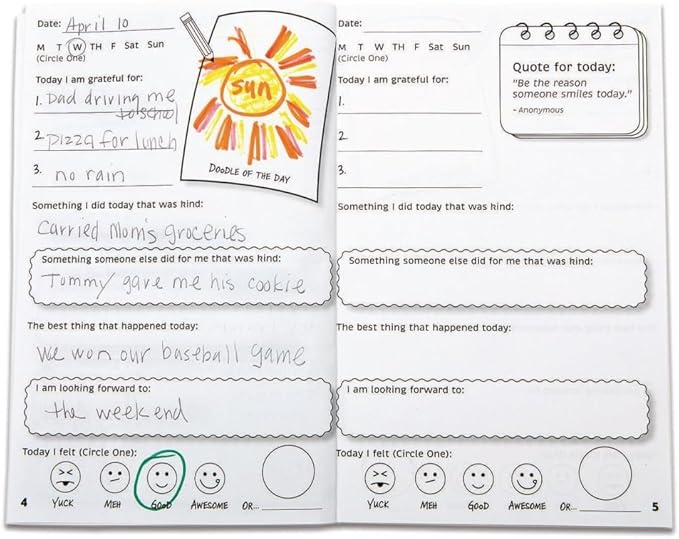 Date: April 10
M T W TH F Sat Sun
(Circle One)
Today I am grateful for:
1. Dad driving me
to school
2. pizza for lunch
3. no rain
sun
DOODLE OF THE DAY
Something I did today that was kind:
Carried Mom's groceries
Something someone else did for me that was kind:
Tommy gave me his cookie
The best thing that happened today:
We won our baseball game
I am looking forward to:
the weekend
Today I felt (Circle One):
YUCK MEH GOOD AWESOME OR...
4
Date:
M T W TH F Sat Sun
(Circle One)
Today I am grateful for:
1.
2.
3.
Quote for today:
"Be the reason
someone smiles today."
- Anonymous
Something I did today that was kind:
Something someone else did for me that was kind:
The best thing that happened today:
I am looking forward to:
Today I felt (Circle One):
YUCK MEH GOOD AWESOME OR...
5